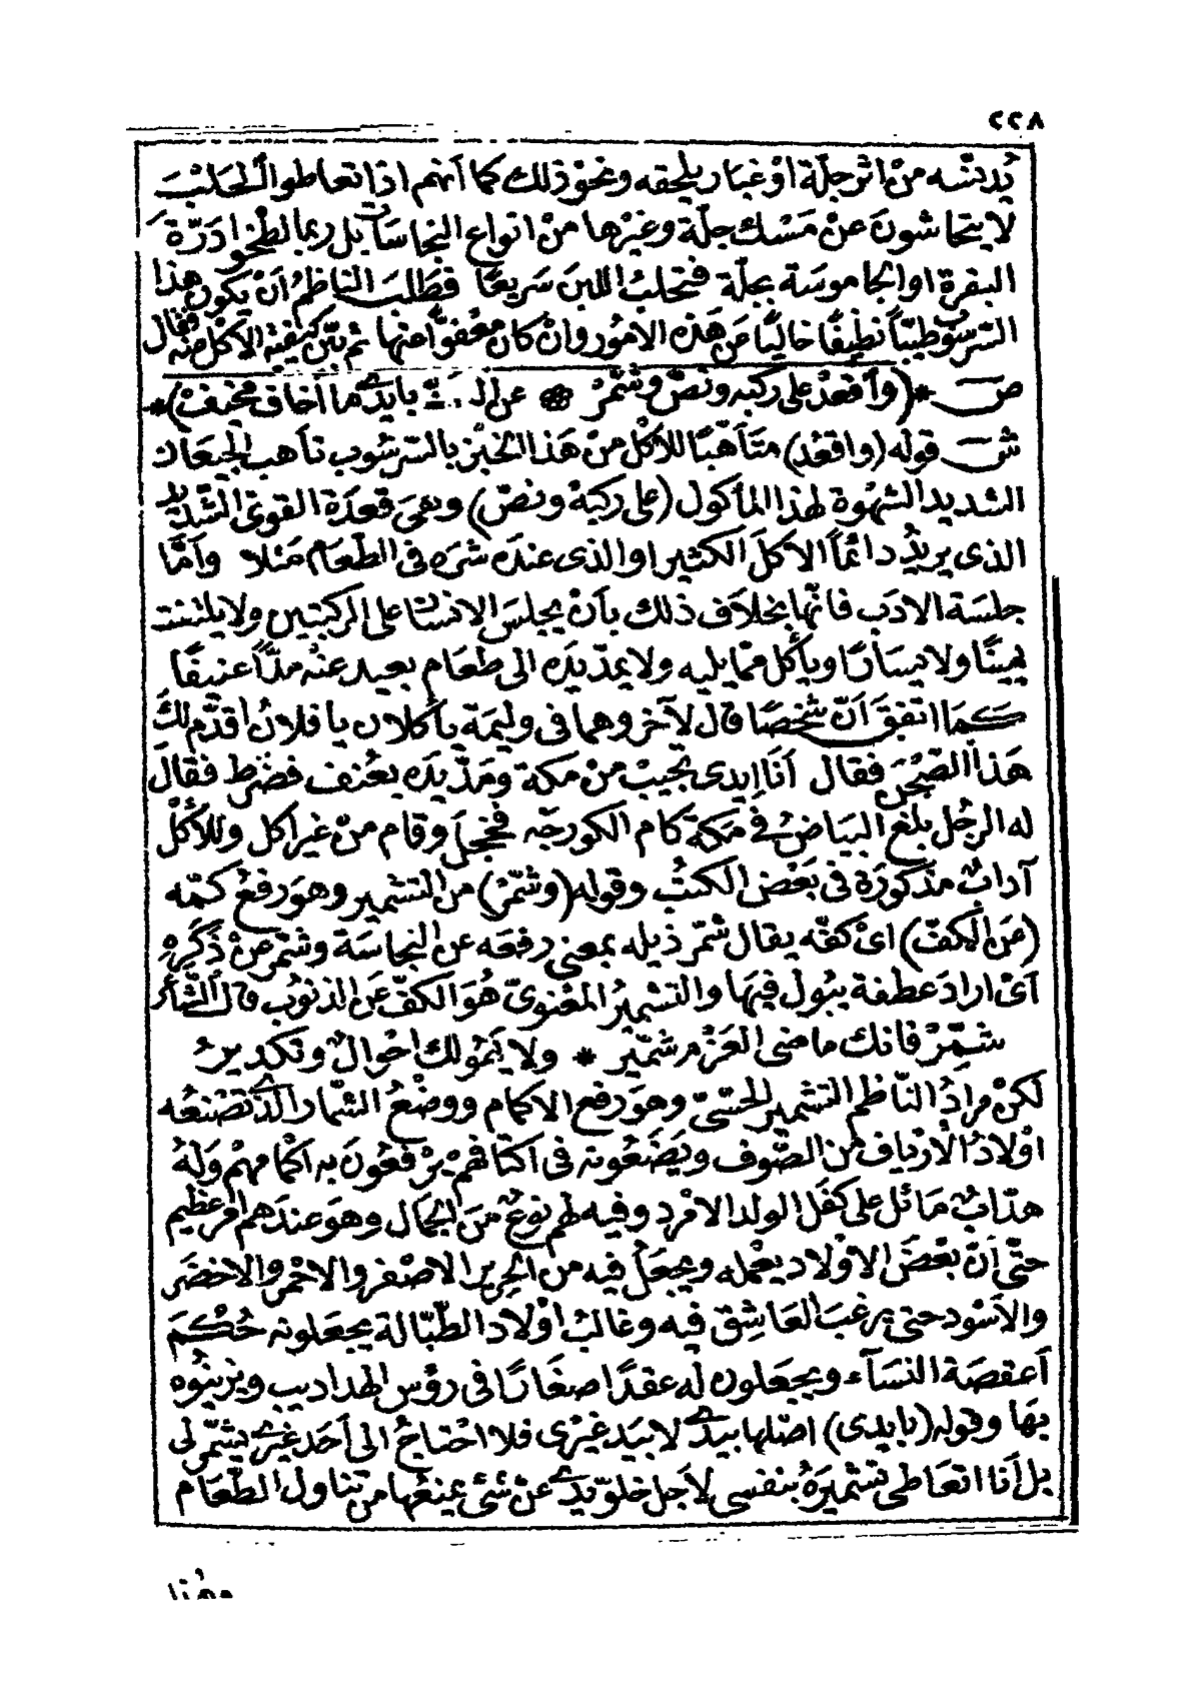 ٢٢٨
يُدنّسه من اثر جلّة اوْ غبار يلحقه ونحوْ ذلك كما أنهم اذا تعاطوا الحليب
لا يتحاشونَ عنْ مَسْك جلّة وغيْرها منْ انواع النجاسات بل ربما لطخوا دَرّةَ
البقرة او الجاموسَة بجلّة فتحلبُ اللبنَ سَريعًا فطلبَ الناظمُ أنْ يكونَ هذا
الترسُوب طيّبًا نظيفًا خاليًا من هَذه الامُور وانْ كان معْفوًّا عنها ثم بيّن كيفية الاكل منه فقال
صـــ *(وأقعدْ على ركبه ونصّ وشمّرْ * عن الـ بايدى ما أخاف مخيف)*
شـــ قوله (واقعُد) متأهّبًا للأكل منْ هَذا الخبْز بالترسُوب تأهب الجيعان
الشديد الشهْوة لهذا المأكول (على ركبهْ ونصّ) وهىَ قعدَة القوىّ الشّديد
الذى يريدُ دائمًا الاكلَ الكثير او الذى عندَه شرَه فى الطّعَام مَثلا وأمّا
جلسَة الادَب فانّها بخلاَف ذلك بأنْ يجلسَ الانسان على الركبتين ولا يلتفت
يمينًا ولا يسَارًا ويأكل ممّا يليه ولا يمدّ يدَه الى طعَام بعيد عنْه مدًّا عنيفًا
كَمَا اتفقَ أنّ شخصًا قال لآخر وهما فى وليمَة يأكلان يا فلانُ اقدّم لكَ
هَذا الصّحْن فقال أنَا ايدى تجيبْ منْ مكة ومَدّ يدَه بعُنف فضَرط فقالَ
له الرجُل بلغ البيَاضْ فى مَكة كام الكورجَه فخجلَ وقام منْ غير اكل وللأكْل
آدابٌ مذكورَة فى بَعْض الكتُب وقوله (وشمّرْ) من التشمير وهوَ رفعُ كمّه
(عَن الكفّ) اىْ كفّه يقال شمّر ذيله بمعنى رفعَه عن النجاسَة وشمّر عنْ ذَكَرِهِ
أىْ ارادَ عطفة يبُول فيهَا والتشميرُ المعْنوىّ هُوَ الكفّ عَن الذنوُب قالَ الشّاعر
شمّرْ فانك ماضى العَزْم شمّير * ولا يَمُولك احْوالٌ وتكديرُ
لَكنْ مرادُ النّاظم التشميرُ الحسّىّ وهوَ رفع الاكمام ووضْعُ الشّمار الذى تصْنعُه
اوْلادُ الْارْياف من الصّوف ويَضَعُونه فى اكتافهمْ يرْفعُونَ به أكمامهُمْ وَلهُ
هدّابٌ مَائل على كفَل الولد الامْرد وفيه لهم نوعٌ منَ الجمَال وهوَ عندَهم امْر عظيم
حتّى أنّ بعْضَ الاوْلاد يعْمله ويجعَلُ فيه من الحرير الاصْفر والاحْمر والاخضَر
والأسْود حتى يرغبَ العَاشِق فيه وغالبُ اوْلاد الطّبّالة يجعَلونه حُكْمَ
أعقصَة النسَآء ويجعَلون له عقدًا صغَارًا فى رؤُس الهداديب ويزينُوه
بهَا وقوله (بايدى) اصْلها بيدى لا بيَد غيْرى فلا احْتاجُ الى أحَد غيْرى يشمّر لى
بل أنا اتعَاطى تشميرَهُ بنفسى لأجل خلوّ يدى عنْ شئ يمنعُها من تناول الطّعَام
وهذا